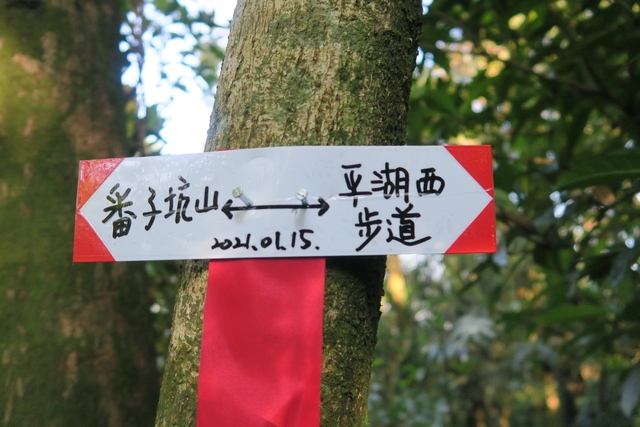 番子坑山 ↔ 平湖西
步道
2021.01.15.